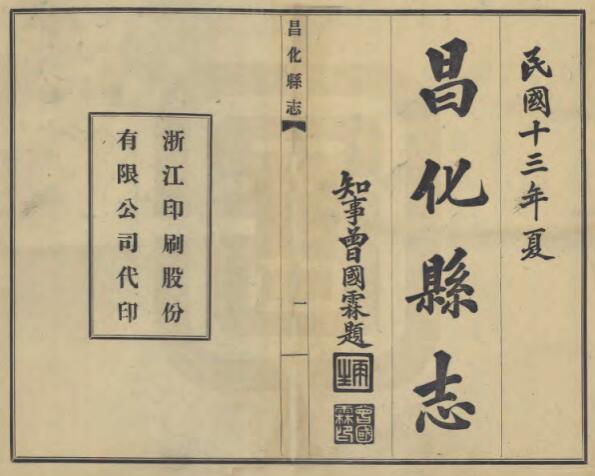 民國十三年夏
昌化縣志
知事曾國霖題
曾國霖印
昌化縣志
一
浙江印刷股份
有限公司代印